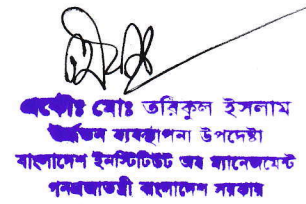 প্রকৌঃ মোঃ তরিকুল ইসলাম
ঊর্ধ্বতন ব্যবস্থাপনা উপদেষ্টা
বাংলাদেশ ইনস্টিটিউট অব ম্যানেজমেন্ট
গনপ্রজাতন্ত্রী বাংলাদেশ সরকার